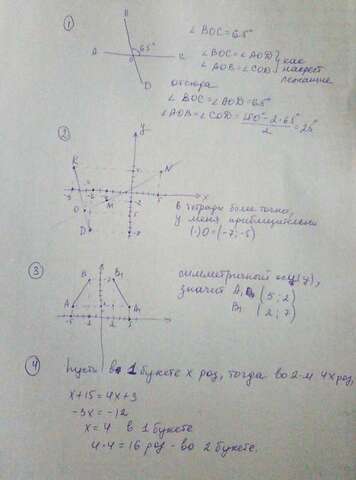 1
B
65°
A
O
C
D
∠BOC=65°
∠BOC=∠AOD
∠AOB=∠COD
как
накрест
лежащие
отсюда
∠BOC=∠AOD=65°
∠AOB=∠COD=(180°-2·65°)/2=25°
2
y
K
N
O
M
D
x
в тетради более точно,
у меня приблизительно
(·)O=(-7;-5)
3
B
B₁
A
A₁
симметричной оси (y),
значит A₁ (5;2)
B₁ (2;7)
4
Пусть в 1 букете x роз, тогда во 2-м 4x роз,
x+15=4x+3
-3x=-12
x=4 в 1 букете
4·4=16 роз - во 2 букете.